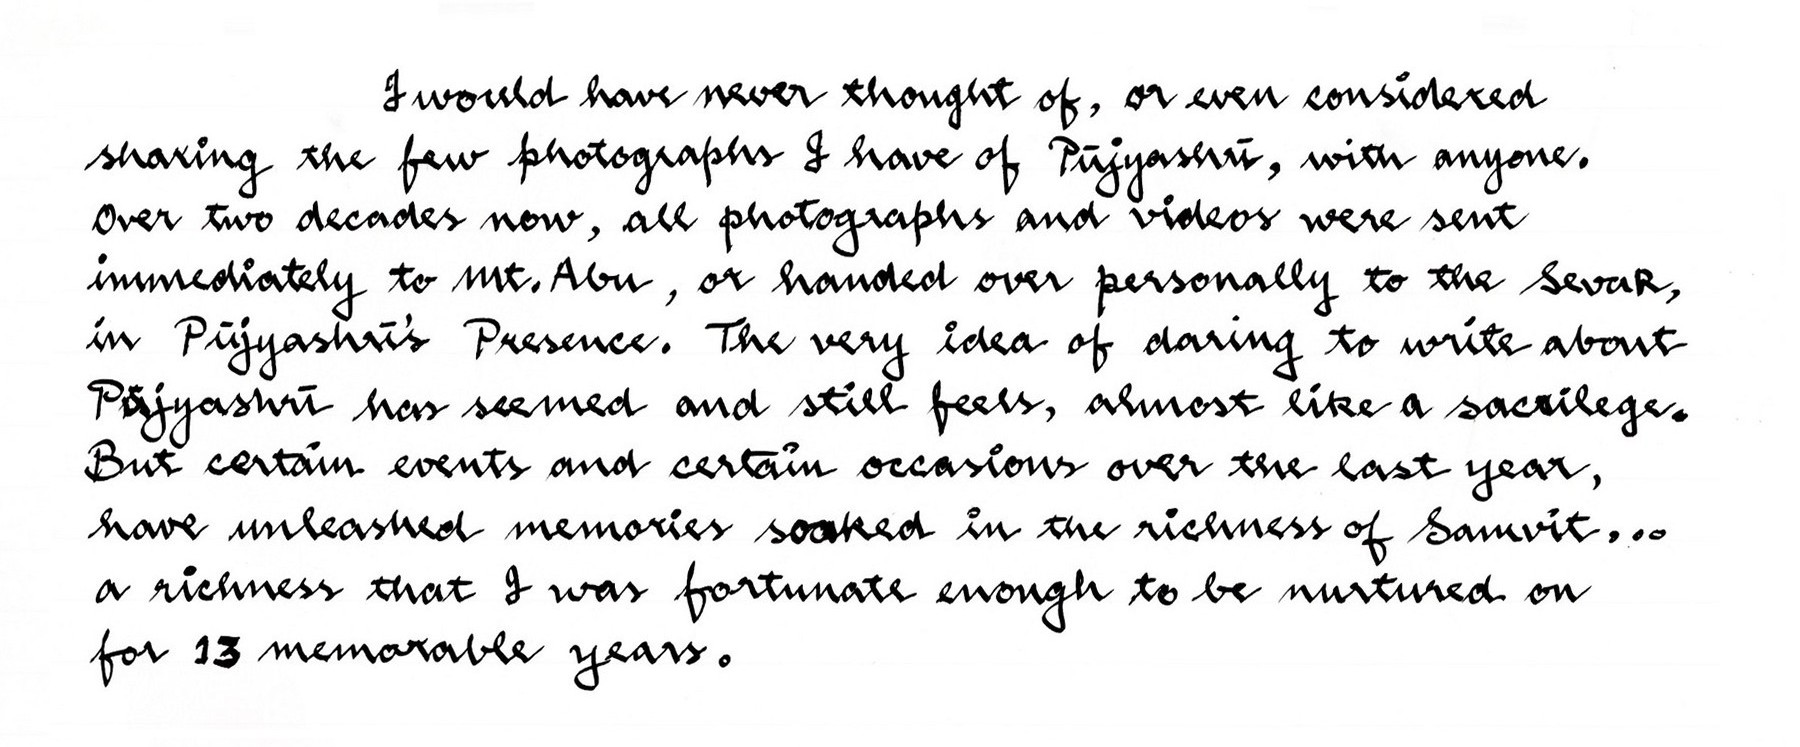 I would have never thought of, or even considered
sharing the few photographs I have of Pūjyashrī, with anyone.
Over two decades now, all photographs and videos were sent
immediately to Mt. Abu, or handed over personally to the Sevak,
in Pūjyashrī's Presence. The very idea of daring to write about
Pūjyashrī has seemed and still feels, almost like a sacrilege.
But certain events and certain occasions over the last year,
have unleashed memories soaked in the richness of Samvit...
a richness that I was fortunate enough to be nurtured on
for 13 memorable years.